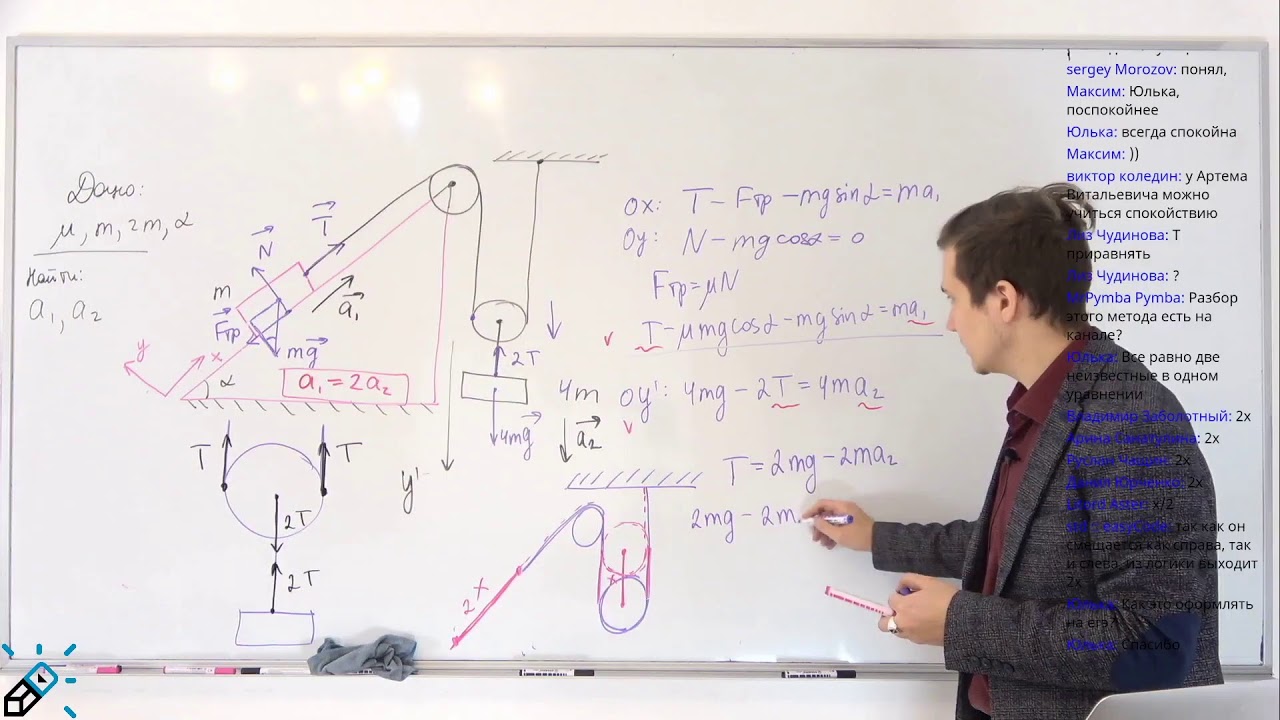 Дано:
μ, m, 2m, α
Найти:
a₁, a₂
N
T
m
Fтр
mg
a₁
y
x
α
a₁ = 2a₂
2T
4m
4mg
a₂
y'
T
T
2T
2T
2x
x
ox: T − Fтр − mg sinα = ma₁
oy: N − mg cosα = 0
Fтр = μN
T − μmg cosα − mg sinα = ma₁
oy': 4mg − 2T = 4ma₂
T = 2mg − 2ma₂
2mg − 2m
sergey Morozov: понял,
Максим: Юлька,
поспокойнее
Юлька: всегда спокойна
Максим: ))
виктор коледин: у Артема
Витальевича можно
учиться спокойствию
Лиз Чудинова: Т
приравнять
Лиз Чудинова: ?
MrPymba Pymba: Разбор
этого метода есть на
канале?
Юлька: Все равно две
неизвестные в одном
уравнении
Владимир Заболотный: 2х
2х
2х
2х
х/2
так как он
смещается как справа, так
и слева, из логики выходит
2х
Юлька: Как это оформлять
на егэ?
Юлька: Спасибо